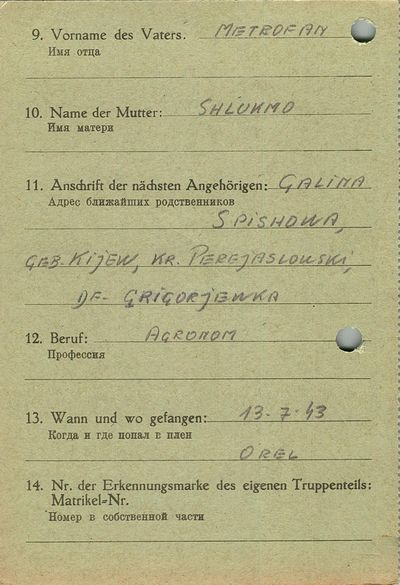 9. Vorname des Vaters. METROFAN
Имя отца
10. Name der Mutter: SHLUKMO
Имя матери
11. Anschrift der nächsten Angehörigen: GALINA
Адрес ближайших родственников
SPISHOWA,
GEB. KIJEW, KR. PEREJASLOWSKI,
DF- GRIGORJEWKA
12. Beruf: AGRONOM
Профессия
13. Wann und wo gefangen: 13-7-43
Когда и где попал в плен
OREL
14. Nr. der Erkennungsmarke des eigenen Truppenteils:
Matrikel=Nr.
Номер в собственной части